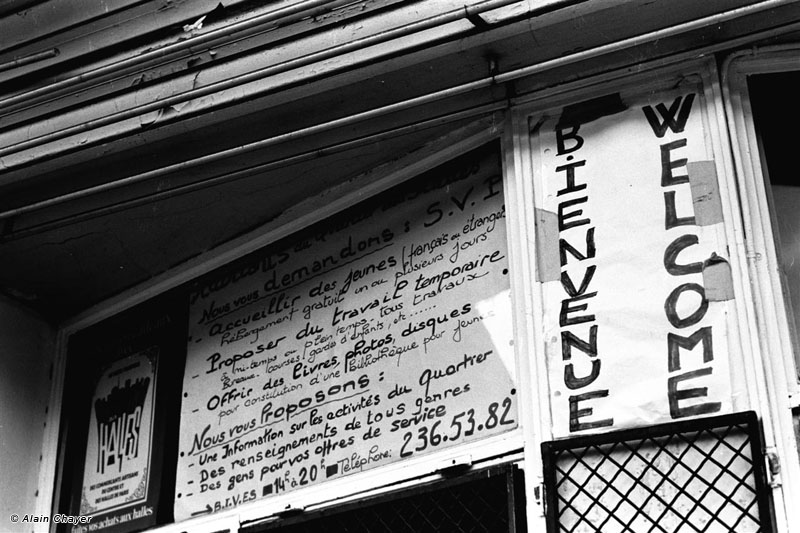 Nous vous demandons : S.V.P
- Accueillir des jeunes (français ou étrangers
Hébergement gratuit un ou plusieurs jours
- Proposer du travail temporaire
à mi-temps ou plein temps - tous travaux
Bureaux - courses (garde d'enfants, etc......
- Offrir des livres, photos, disques
pour constitution d'une Bibliothèque pour jeunes
Nous vous Proposons :
- Une Information sur les activités du Quartier
- Des renseignements de tous genres
- Des gens pour vos offres de service
→ B.I.V.E.S ■ 14h à 20h ■ Téléphone: 236.53.82
BIENVENUE
WELCOME
HALLES
vos achats aux halles
© Alain Chayer